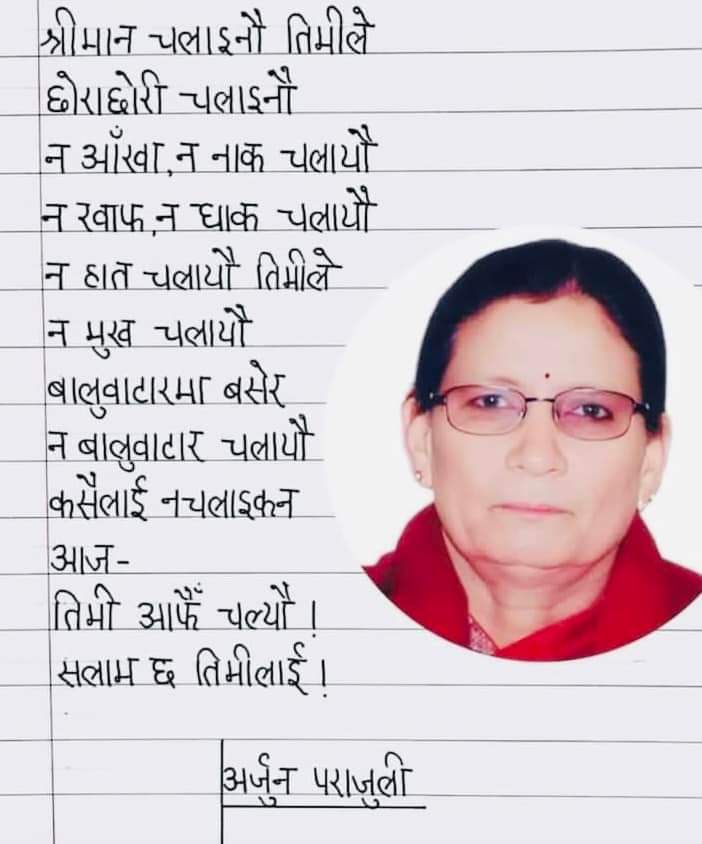 श्रीमान चलाइनौ तिमीले
छोराछोरी चलाइनौ
न आँखा,न नाक चलायौ
न रवाफ,न धाक चलायौ
न हात चलायौ तिमीले
न मुख चलायौ
बालुवाटारमा बसेर
न बालुवाटार चलायौ
कसैलाई नचलाइकन
आज-
तिमी आफैँ चल्यौ !
सलाम छ तिमीलाई !
अर्जुन पराजुली